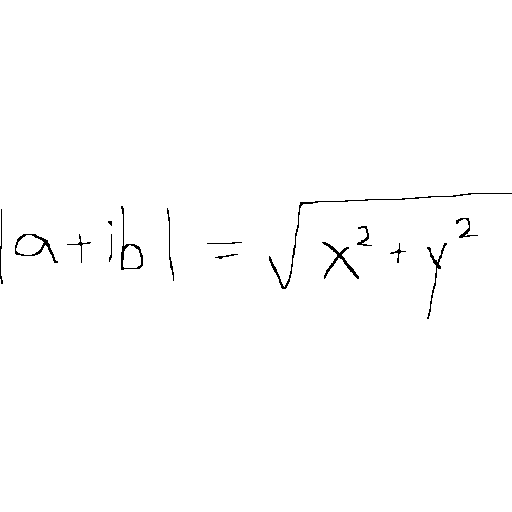 |a+ib| = √(x² + y²)